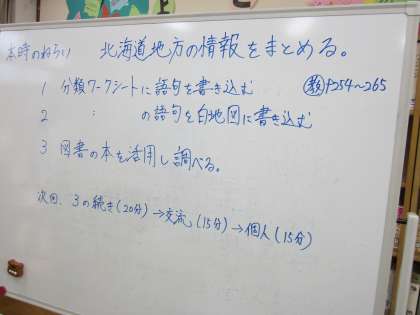 本時のねらい 北海道地方の情報をまとめる。
1 分類ワークシートに語句を書き込む 教 P254~265
2 〃 の語句を白地図に書き込む
3 図書の本を活用し調べる。
次回、3の続き(20分)→交流(15分)→個人(15分)